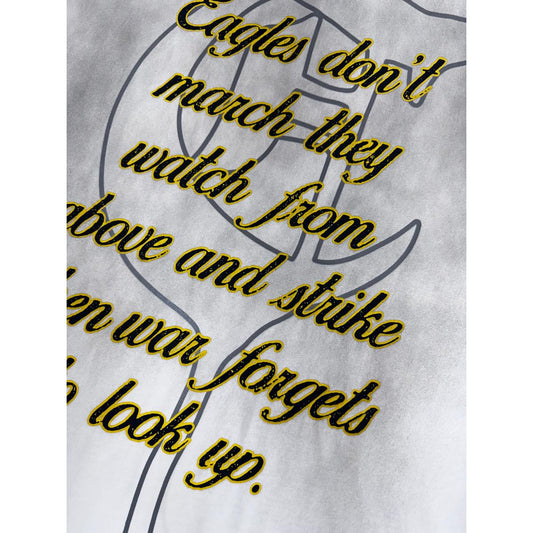 Eagles don't
march they
watch from
above and strike
when war forgets
to look up.